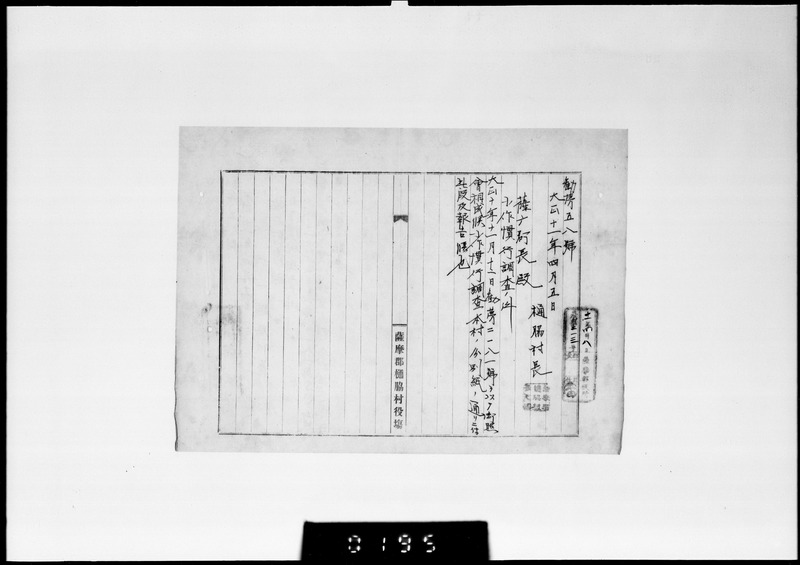 勧第五八號
大正十一年四月五日
樋脇村長
薩摩郡長殿
小作慣行調査ノ件
大正十年十一月十二日勧第二一八一號ヲ以テ御照
會相成候小作慣行調査本村ノ分別紙ノ通リニ
此段及報告候也
薩摩郡樋脇村役場
0195